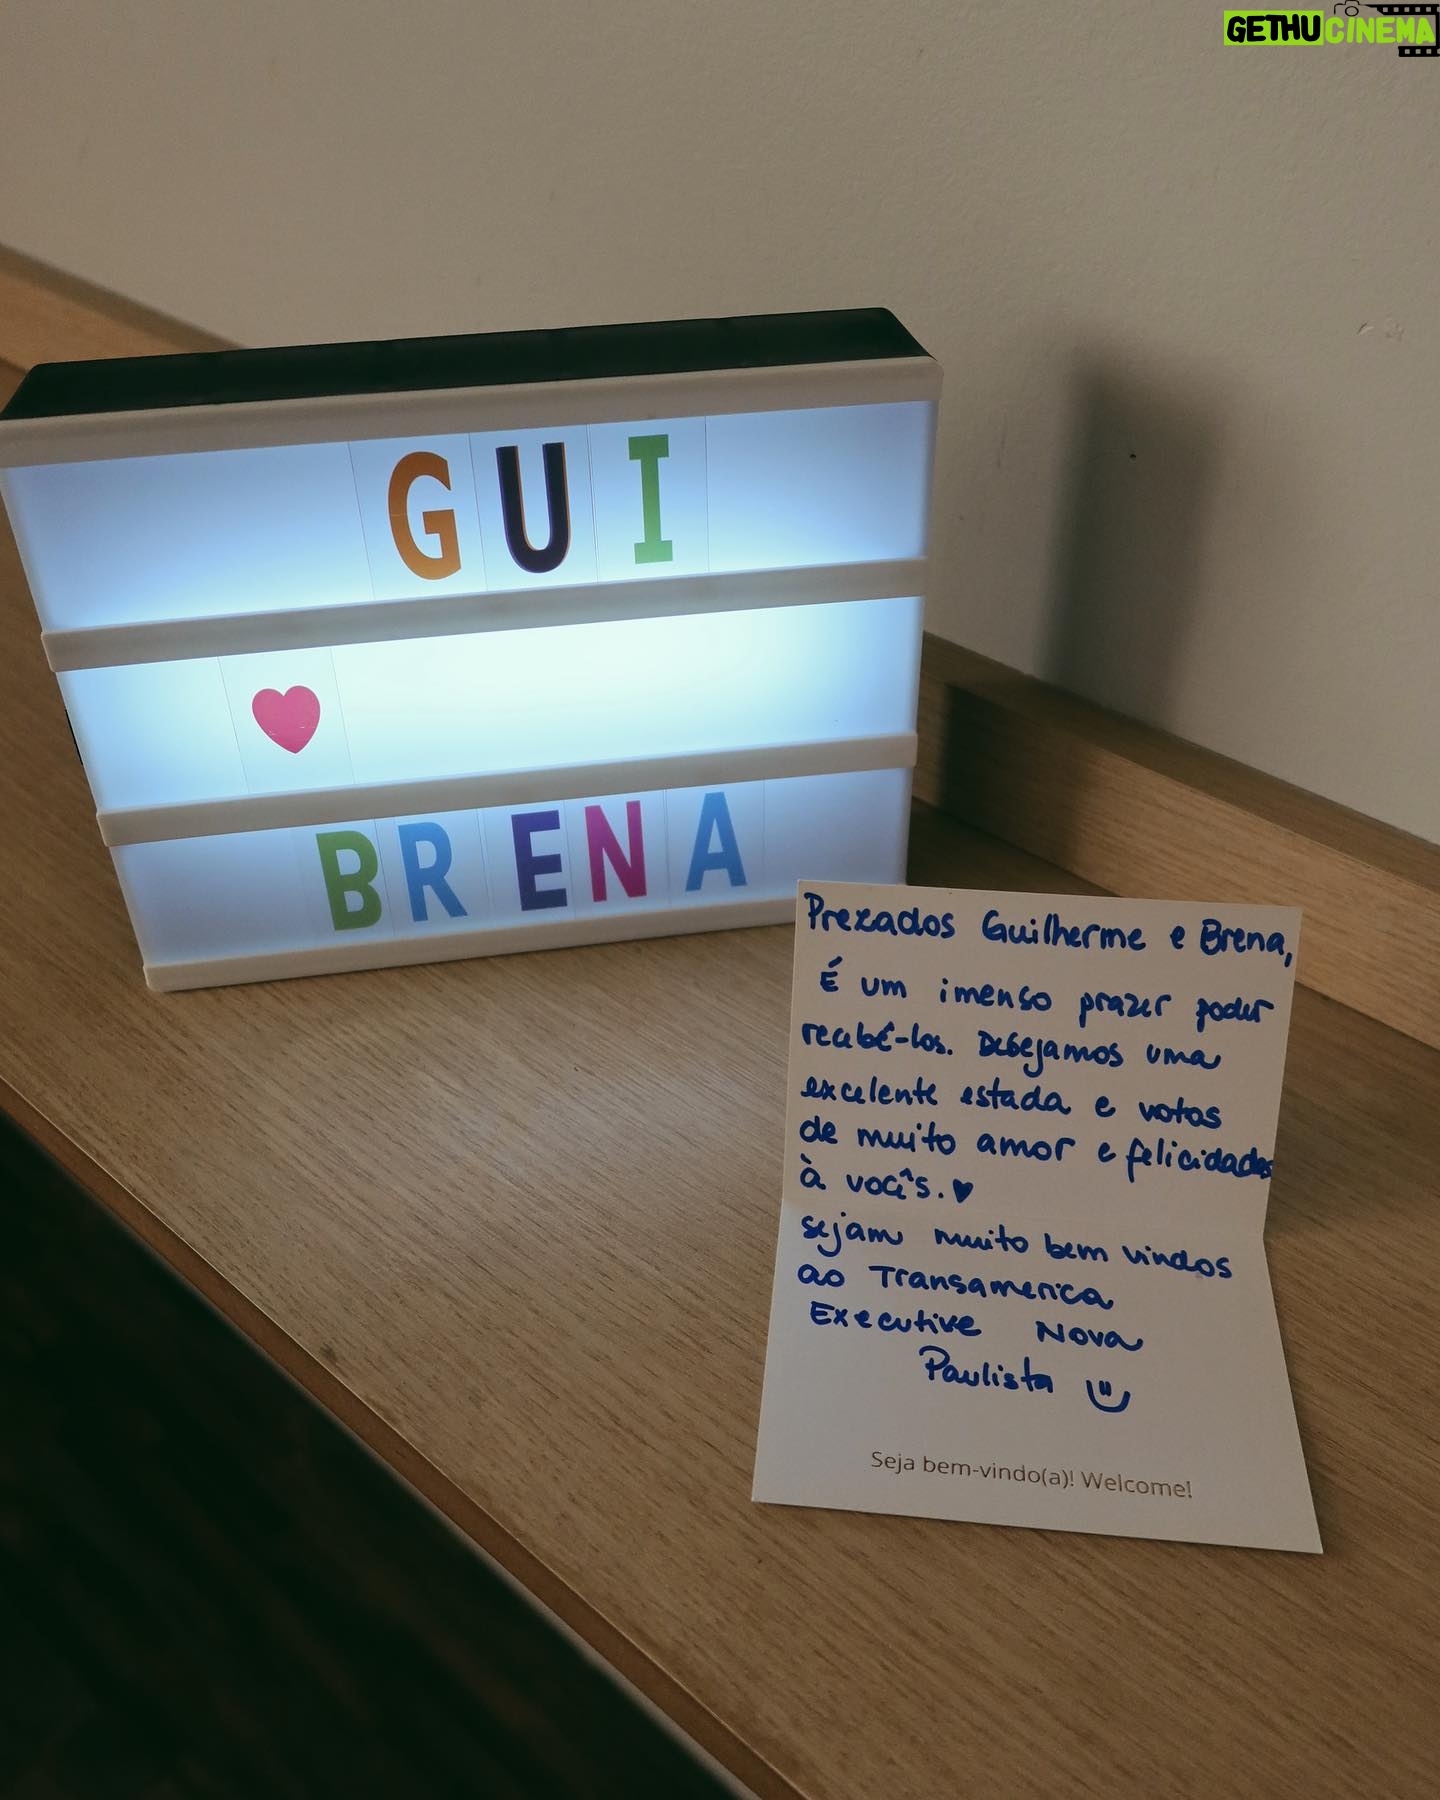 GETHUCINEMA
GUI
♥
BRENA
Prezados Guilherme e Brena,
É um imenso prazer poder
recebê-los. Desejamos uma
excelente estada e votos
de muito amor e felicidades
à vocês.♥
sejam muito bem vindos
ao Transamerica
Executive Nova
Paulista
Seja bem-vindo(a)! Welcome!